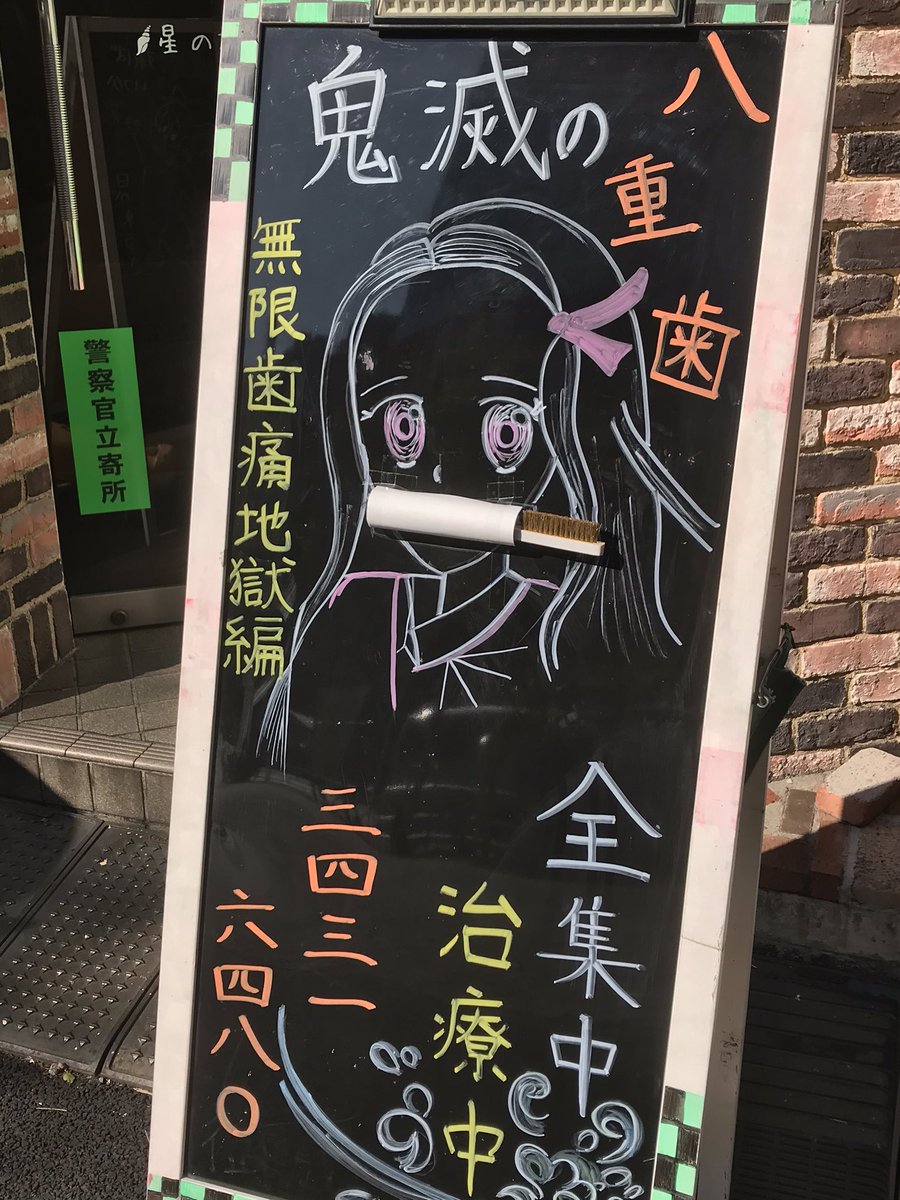 鬼滅の
八重歯
無限歯痛地獄編
全集中
治療中
三四三一
六四八〇
警察官立寄所
星の